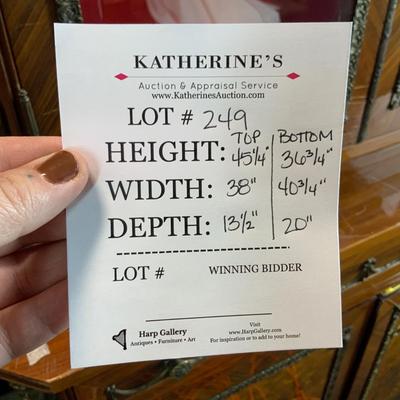 KATHERINE'S
Auction & Appraisal Service
www.KatherinesAuction.com
LOT # 249
TOP BOTTOM
HEIGHT: 45¼" 36¾"
WIDTH: 38" 40¾"
DEPTH: 13½" 20"
LOT # WINNING BIDDER
Harp Gallery
Antiques • Furniture • Art
Visit
www.HarpGallery.com
For inspiration or to add to your home!